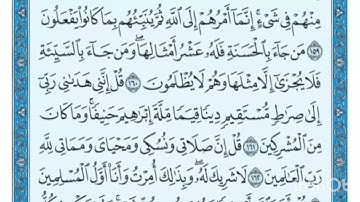 مِنْهُمْ فِى شَىْءٍ ۚ إِنَّمَآ أَمْرُهُمْ إِلَى ٱللَّهِ ثُمَّ يُنَبِّئُهُم بِمَا كَانُوا۟ يَفْعَلُونَ
﴿١٥٩﴾ مَن جَآءَ بِٱلْحَسَنَةِ فَلَهُۥ عَشْرُ أَمْثَالِهَا ۖ وَمَن جَآءَ بِٱلسَّيِّئَةِ
فَلَا يُجْزَىٰٓ إِلَّا مِثْلَهَا وَهُمْ لَا يُظْلَمُونَ ﴿١٦٠﴾ قُلْ إِنَّنِى هَدَىٰنِى رَبِّىٓ
إِلَىٰ صِرَٰطٍ مُّسْتَقِيمٍ دِينًا قِيَمًا مِّلَّةَ إِبْرَٰهِيمَ حَنِيفًا ۚ وَمَا كَانَ
مِنَ ٱلْمُشْرِكِينَ ﴿١٦١﴾ قُلْ إِنَّ صَلَاتِى وَنُسُكِى وَمَحْيَاىَ وَمَمَاتِى لِلَّهِ
رَبِّ ٱلْعَٰلَمِينَ ﴿١٦٢﴾ لَا شَرِيكَ لَهُۥ ۖ وَبِذَٰلِكَ أُمِرْتُ وَأَنَا۠ أَوَّلُ ٱلْمُسْلِمِينَ